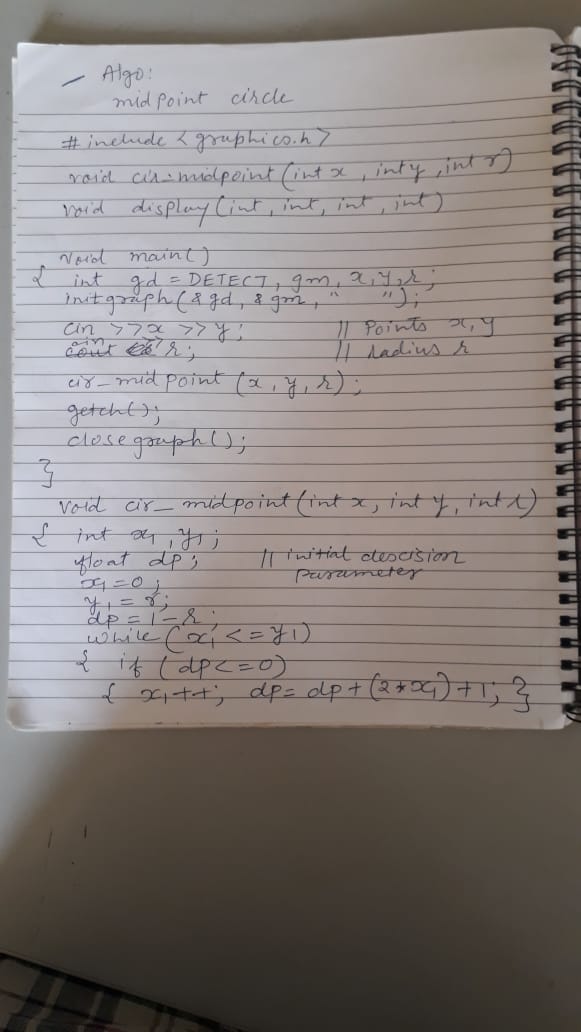 Algo:
midpoint circle
#include <graphics.h>
void cir-midpoint (int x, int y, int r)
void display (int, int, int, int)
void main()
{ int gd = DETECT, gm, x, y, r;
initgraph (&gd, &gm, " ");
cin >> x >> y; // Points x, y
cin r; // radius r
cir_midpoint (x, y, r);
getch();
closegraph();
}
void cir_midpoint (int x, int y, int r)
{ int x1, y1;
float dp; // initial descision
parameter
x1 = 0;
y1 = r;
dp = 1 - r;
while (x1 <= y1)
{ if (dp <= 0)
{ x1++; dp = dp + (2 * x1) + 1; }